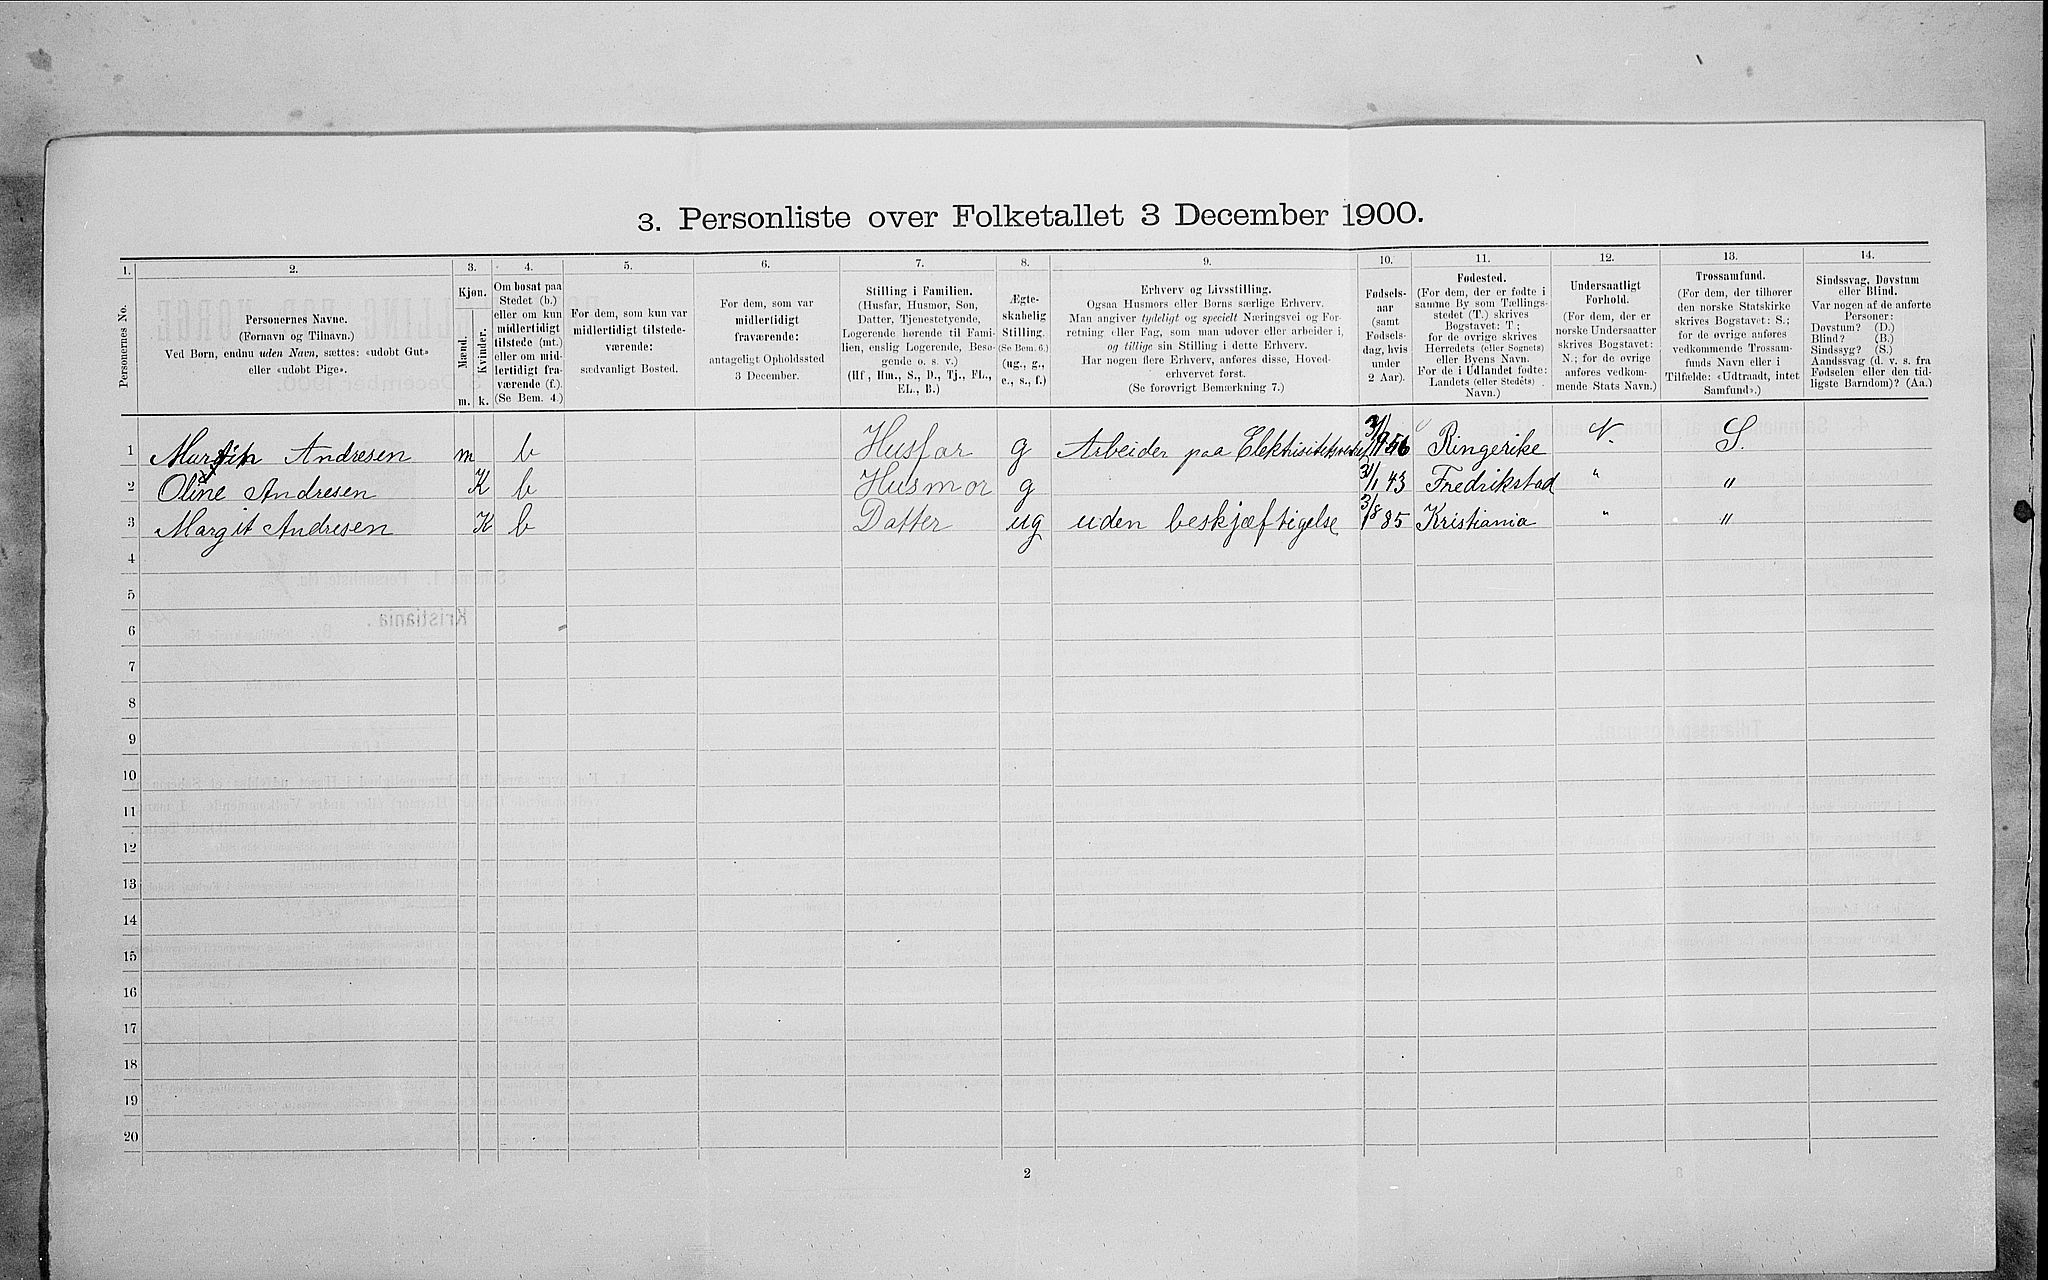 3. Personliste over Folketallet 3 December 1900.
1. 2. 3. 4. 5. 6. 7. 8. 9. 10. 11. 12. 13. 14.
Personernes No.
Personernes Navne.
(Fornavn og Tilnavn.)
Ved Børn, endnu uden Navn, sættes: «udøbt Gut»
eller «udøbt Pige».
Kjøn.
Mænd.
Kvinder.
m. k.
Om bosat paa
Stedet (b.)
eller om kun
midlertidigt
tilstede (mt.)
eller om mid-
lertidigt fra-
værende (f.)
(Se Bem. 4.)
For dem, som kun var
midlertidigt tilstede-
værende:
sædvanligt Bosted.
For dem, som var
midlertidigt
fraværende:
antageligt Opholdssted
3 December.
Stilling i Familien.
(Husfar, Husmor, Søn,
Datter, Tjenestetyende,
Logerende hørende til Fami-
lien, enslig Logerende, Besø-
gende o. s. v.)
(Hf., Hm., S., D., Tj., FL.,
EL., B.)
Ægte-
skabelig
Stilling.
(Se Bem. 6.)
(ug., g.,
e., s., f.)
Erhverv og Livsstilling.
Ogsaa Husmors eller Børns særlige Erhverv.
Man angiver tydeligt og specielt Næringsvei og For-
retning eller Fag, som man udøver eller arbeider i,
og tillige sin Stilling i dette Erhverv.
Har nogen flere Erhverv, anføres disse, Hoved-
erhvervet først.
(Se forøvrigt Bemærkning 7.)
Fødsels-
aar
(samt
Fødsels-
dag, hvis
under
2 Aar).
Fødested.
(For dem, der er fødte i
samme By som Tællings-
stedet (T.) skrives
Bogstavet: T;
for de øvrige skrives
Herredets (eller Sognets)
eller Byens Navn.
For de i Udlandet fødte:
Landets (eller Stedets)
Navn.)
Undersaatligt
Forhold.
(For dem, der er
norske Undersaatter
skrives Bogstavet:
N.; for de øvrige
anføres vedkom-
mende Stats Navn.)
Trossamfund.
(For dem, der tilhører
den norske Statskirke
skrives Bogstavet: S.;
for de øvrige anføres
vedkommende Trossam-
funds Navn eller i
Tilfælde: «Udtraadt, intet
Samfund».)
Sindssvag, Døvstum
eller Blind.
Var nogen af de anførte
Personer:
Døvstum? (D.)
Blind? (B.)
Sindssyg? (S.)
Aandssvag (d. v. s. fra
Fødselen eller den tid-
ligste Barndom)? (Aa.)
1 Martin Andresen m b Husfar g Arbeider paa 56 Ringerike N. S.
2 Oline Andresen K b Husmor g 3/1 43 Fredrikstad " "
3 Margit Andresen K b Datter ug uden beskjæftigelse 3/8 85 Kristiania " "
4
5
6
7
8
9
10
11
12
13
14
15
16
17
18
19
20
2